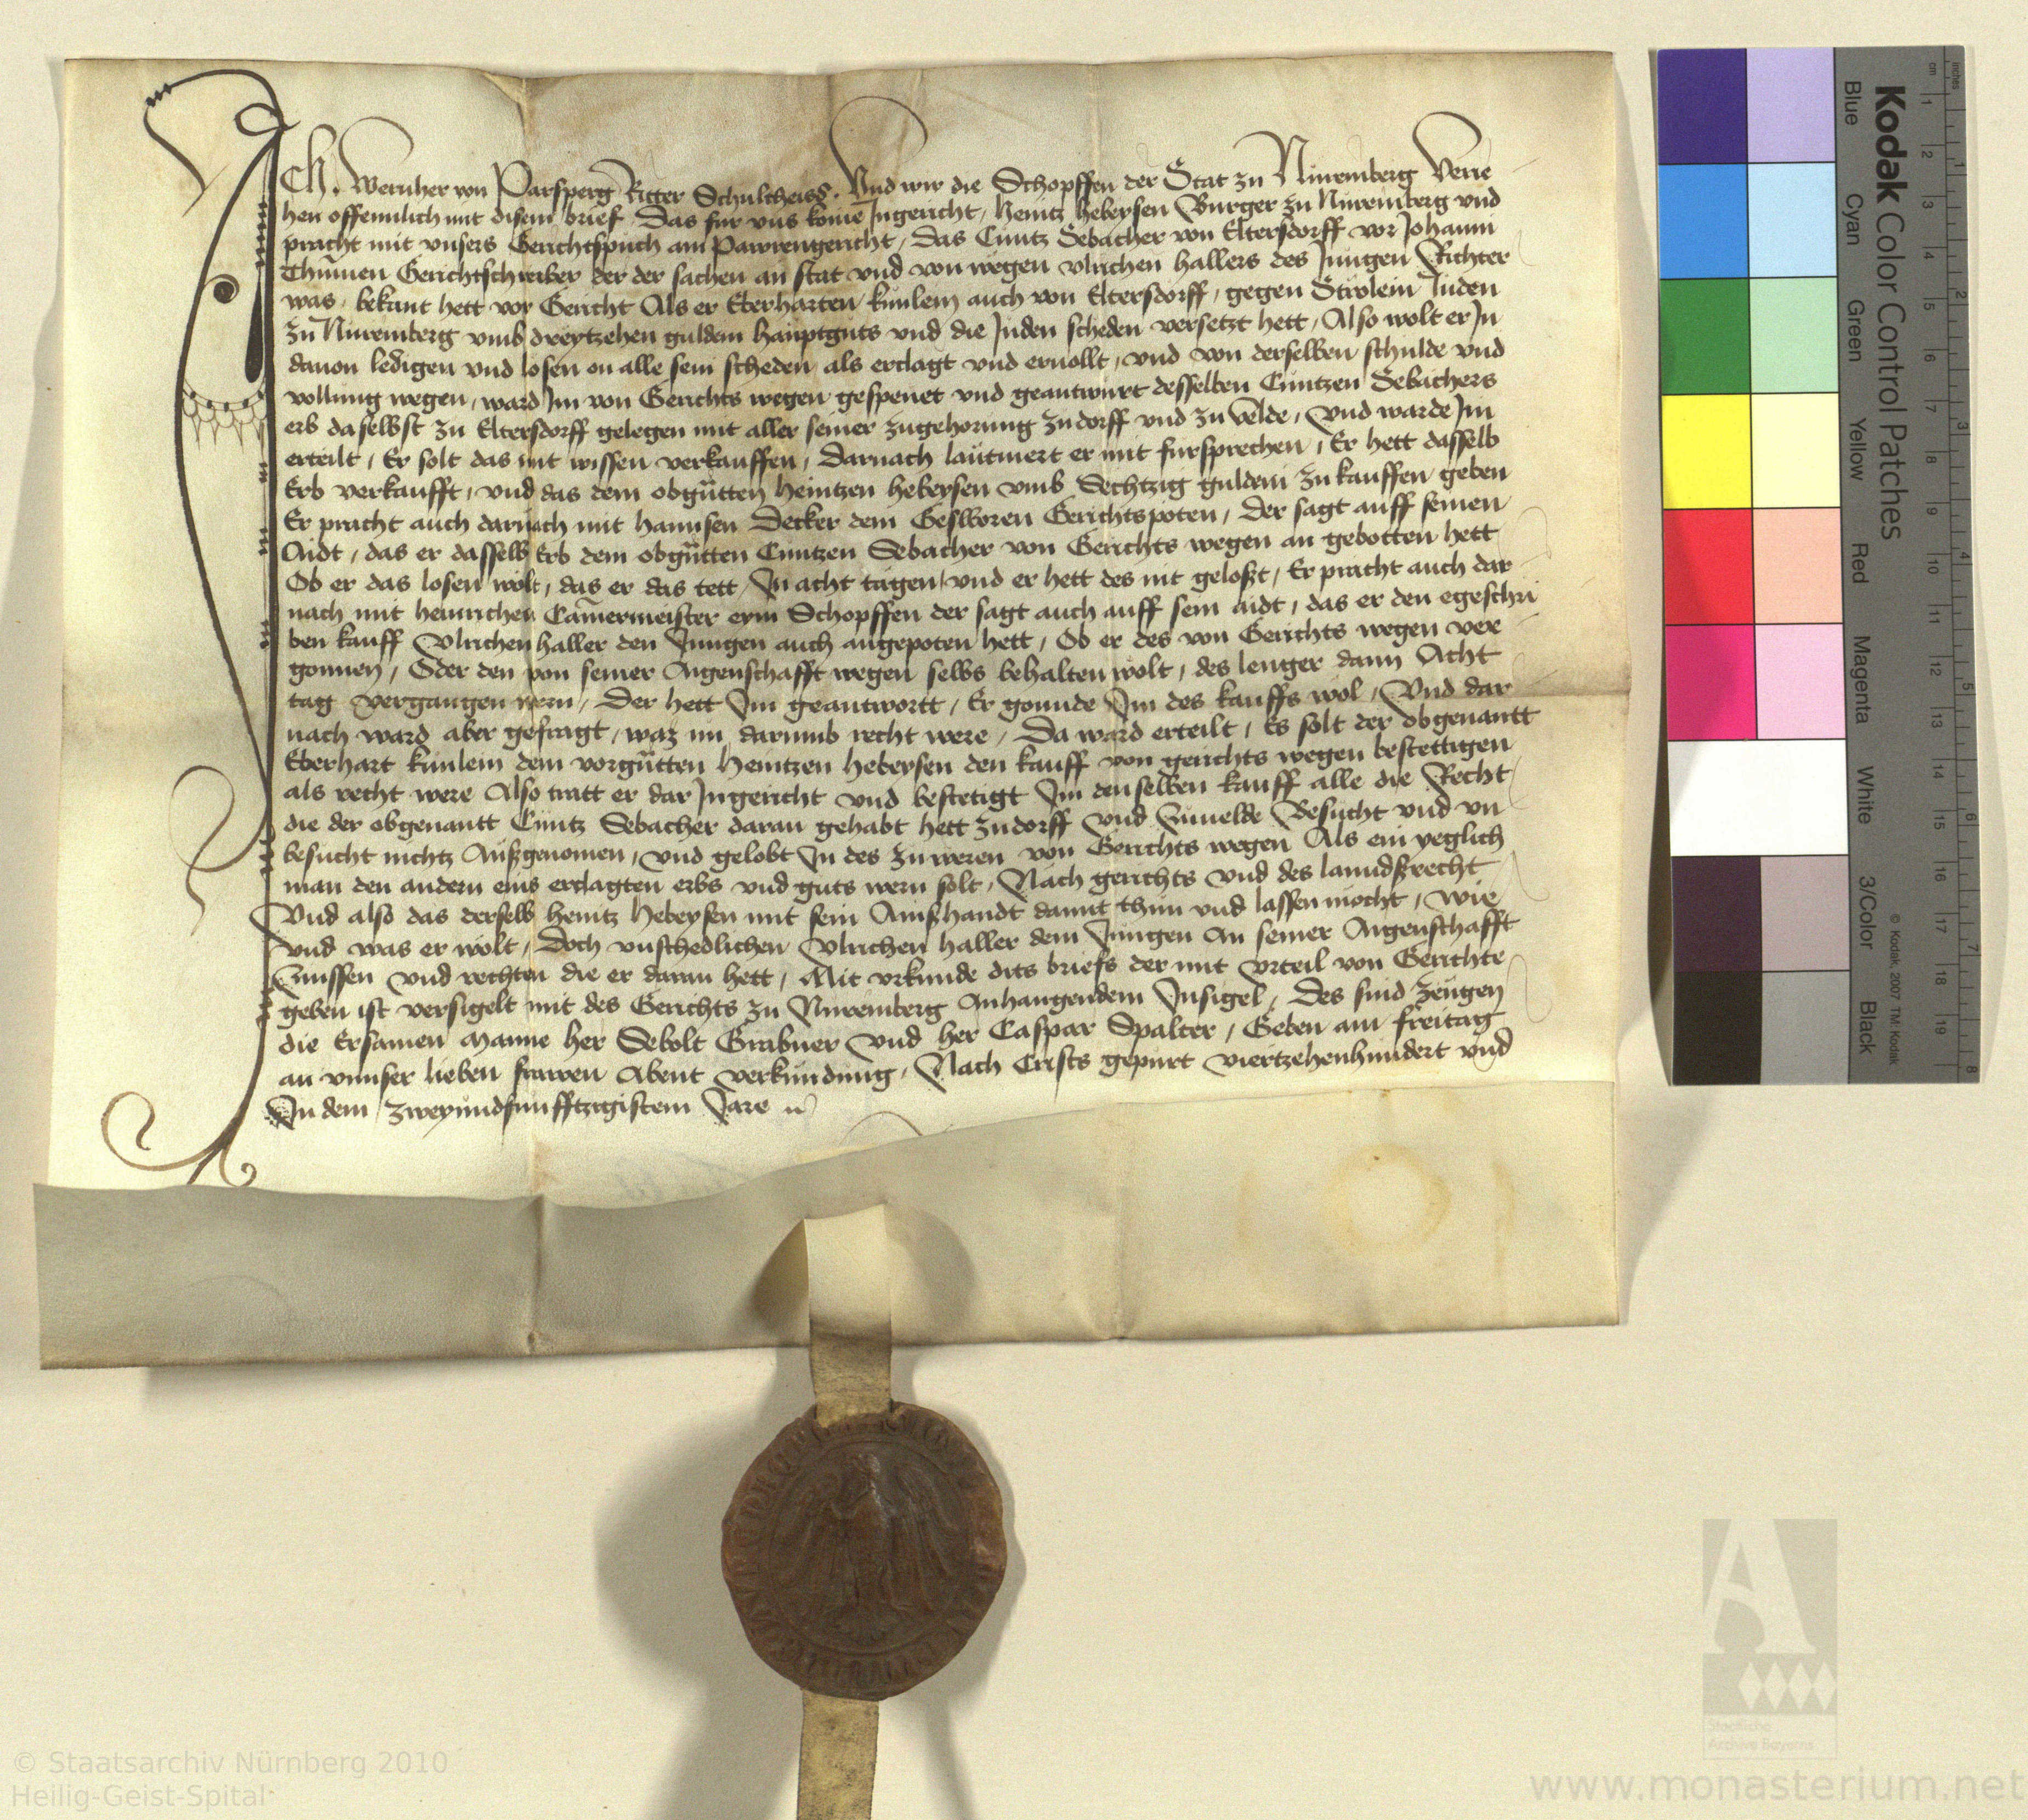 Ich Wernher von Parsperg Ritter Schultheiss. Vnd wir die Schopffen der Stat zu Nüremberg Verie
hen offennlich mit disem brief, Das fur vns kome Ingericht, heintz hebeysen Burger zu Nüremberg vnd
pracht mit vnsers Gerichtspuch am Pawrengericht, das Cüntz Sebacher von Eltersdorff vor Johann
Thummen Gerichtschreiber der der sachen an stat vnd von wegen vlrichen hallers des Jungen Richter
was, bekant hett vor Gericht Als er Eberharten künlein auch von Eltersdorff, gegen Strölein Juden
zu Nüremberg vmb dreytzehen guldein hauptguts vnd die Juden scheden versetzt hett, Also wolt er In
dauon ledigen vnd losen on alle sein scheden als erclagt vnd eruollt, vnd von derselben schulde vnd
vollung wegen, ward Im von Gerichts wegen gespenet vnd geantwurt desselben Cüntzen Sebachers
erb daselbst zu Eltersdorff gelegen mit aller seiner zugehorung zu dorff vnd zu velde, Vnd warde Im
erteilt, Er solt das mit wissen verkauffen, Darnach lautmert er mit fursprechen, Er hett dasselb
Erb verkaufft, vnd das dem obgn̄tten heintzen hebeysen vmb Sechtzig guldein zu kauffen geben
Er pracht auch darnach mit hannsen Decker dem Gesworen Gerichtspoten, der sagt auff seinen
Aidt, das er dasselb Erb dem obgn̄tten Cüntzen Sebacher von Gerichts wegen an gebotten hett
Ob er das losen wolt, das er das tett, In acht tagen, vnd er hett des nit geloszt, Er pracht auch dar
nach mit heinrichen Camermeister eym Schopffen der sagt auch auff sein aidt, das er den egeschri
ben kauff Vlrichen haller den Jungen auch angepoten hett, Ob er des von Gerichts wegen ver
gonnen, Oder den von seiner Aigenschafft wegen selbs behalten wolt, des lenger dann Acht
tag vergangen wern, Der hett Im geantwortt, Er gonnde Im des kauffs wol, Vnd dar
nach ward aber gefragt, waz nu darumb recht were, Da ward erteilt, Es solt der obgenantt
Eberhart künlein dem vorgn̄tten heintzen hebeysen den kauff von gerichts wegen bestettigen
als recht were Also tratt er dar Ingericht vnd bestetigt Im denselben kauff alle die Recht
die der obgenantt Cüntz Sebacher daran gehabt hett zu dorff vnd Zuuelde Besucht vnd vn
besucht nichtz Auszgenomen, vnd gelobt In des zu weren von Gerichts wegen Als ein yeglich
man den andern eins erclagten erbs vnd guts wern solt, Nach gerichts vnd des lanndszrecht
Vnd also das derselb heintz hebeysen mit sein Ainszhandt damit thun vnd lassen mocht, wie
vnd was er wolt, Doch vnschedlichen Vlrichen haller dem Jungen an seiner Aigenschafft
Zinssen vnd rechten die er daran hett, Mit vrkunde dits briefs der mit vrteil von Gerichte
geben ist versigelt mit des Gerichts zu Nüremberg Anhangendem Insigel, Des sind zeugen
die Ersamen Manne her Sebolt Grabner vnd her Caspar Spalter, Geben am freitag
an vnnser lieben frawen Abent verkundung, Nach Crists gepurt viertzehenhundert vnd
In dem zweyundfunfftzigistem Jare
Kodak Color Control Patches
Blue Cyan Green Yellow Red Magenta White 3/Color Black
© Kodak, 2007 TM: Kodak
cm 1 2 3 4 5 6 7 8 9 10 11 12 13 14 15 16 17 18 19
inches 1 2 3 4 5 6 7 8
Staatliche
Archive Bayerns
© Staatsarchiv Nürnberg 2010
Heilig-Geist-Spital
www.monasterium.net